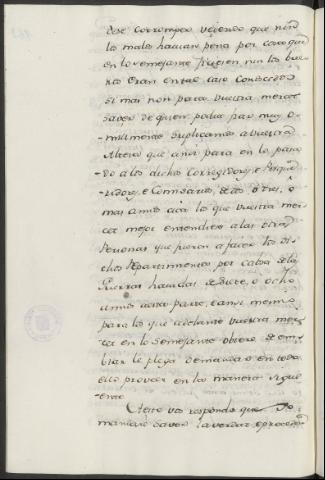 dose corromper veyendo que nin
los malos havian pena por cosa que
en lo semejante ficiesen nin los bue-
nos eran en tal caso conoscidos
si mas non para vuestra merced
saver de quien podia fiar muy o-
milmente suplicamos a vuestra
Alteza que ansi para en lo pasa-
do a los dichos Corregidores e Pesqui-
-ridores, e Comisarios, de dos, o tres, o
mas años acá los que vuestra mer-
ced mejor entendiere a las otras
Personas que fueron a facer los di-
chos Repartimientos por causa de las
Guerras havidas de siete, o ocho
años a esta parte, e ansi mesmo
para los que adelante vuestra mer-
ced en lo semejante obiere de em-
biar le plega demandar o en todo
ello proveer en la manera sigui-
-ente
A esto vos respondo que Yo
mandaré saver la verdad, e proceder